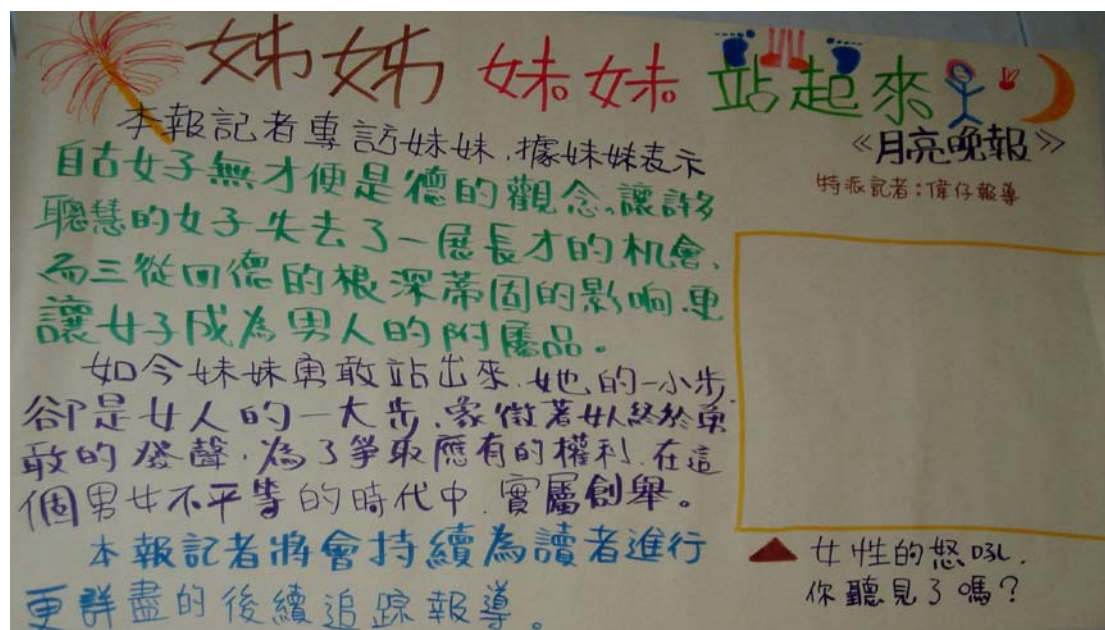 姊姊妹妹站起來
《月亮晚報》
特派記者:偉仔報導
本報記者專訪妹妹,據妹妹表示
自古女子無才便是德的觀念,讓許多
聰慧的女子失去了一展長才的机會,
而三從四德的根深蒂固的影响,更
讓女子成為男人的附屬品。
如今妹妹勇敢站出來,她的一小步,
卻是女人的一大步,象徵著女人終於勇
敢的發聲,為了爭取應有的權利,在這
個男女不平等的時代中,實屬創舉。
本報記者將會持續為讀者進行
更詳盡的後續追踪報導。
▲女性的怒吼,
你聽見了嗎?